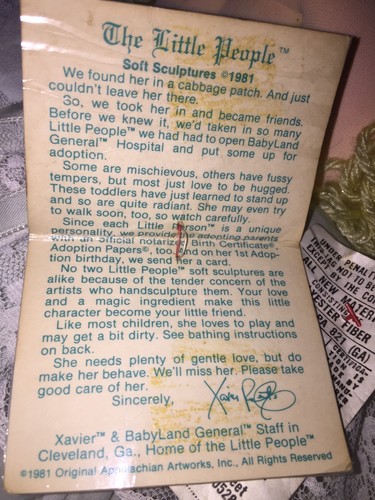 The Little People™
Soft Sculptures ©1981
We found her in a cabbage patch. And just
couldn't leave her there.
So, we took her in and became friends.
Before we knew it, we'd taken in so many
Little People™ we had had to open BabyLand
General™ Hospital and put some up for
adoption.
Some are mischievous, others have fussy
tempers, but most just love to be hugged.
These toddlers have just learned to stand up
and so are quite radiant. She may even try
to walk soon, too, so watch carefully.
Since each Little Person™ is a unique
personality, we provide the adopting parents
with an official notarized Birth Certificate®,
Adoption Papers®, too. And on her 1st Adop-
tion birthday, we send her a card.
No two Little People™ soft sculptures are
alike because of the tender concern of the
artists who handsculpture them. Your love
and a magic ingredient make this little
character become your little friend.
Like most children, she loves to play and
may get a bit dirty. See bathing instructions
on back.
She needs plenty of gentle love, but do
make her behave. We'll miss her. Please take
good care of her.
Sincerely,
Xavier™ & BabyLand General™ Staff in
Cleveland, Ga., Home of the Little People™
©1981 Original Appalachian Artworks, Inc., All Rights Reserved
UNDER PENALTY
NOT TO BE
ALL NEW MATERIAL
POLYESTER FIBER
821 (GA)